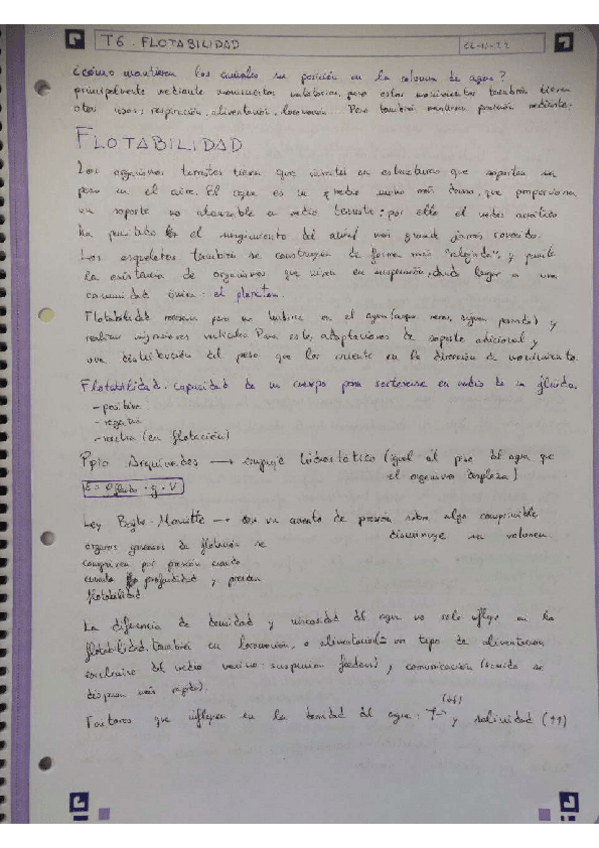 T6. FLOTABILIDAD
¿cómo mantienen los animales su posición en la columna de agua?
principalmente mediante movimientos natatorios, pero estos movimientos también tienen
otros usos: respiración, alimentación, locomoción... Pero también mantienen posición mediante:
FLOTABILIDAD
Los organismos terrestres tienen que invertir en estructuras que soporten su
peso en el aire. El agua es un medio mucho más denso, que proporciona
un soporte no alcanzable en medio terrestre; por ello el medio acuático
ha permitido el surgimiento del animal más grande jamás conocido.
Los esqueletos también se construyen de forma más "relajada", y permite
la existencia de organismos que viven en suspensión, dando lugar a una
comunidad única: el plancton.
Flotabilidad necesaria para no hundirse en el agua (aunque menos, siguen pesando) y
realizar migraciones verticales. Para esto, adaptaciones de soporte adicional y
una distribución del peso que los oriente en la dirección de movimiento.
Flotabilidad: capacidad de un cuerpo para sostenerse en medio de un fluido.
- positiva
- negativa
- neutra (en flotación)
Ppio Arquímedes → empuje hidrostático (igual al peso del agua que
el organismo desplaza)
E = ρ fluido · g · V
Ley Boyle-Mariotte → con un aumento de presión sobre algo comprimible
disminuye su volumen.
órganos gaseosos de flotación se
comprimen por presión cuando
aumenta profundidad y pierden
flotabilidad
La diferencia de densidad y viscosidad del agua no solo influye en la
flotabilidad, también en locomoción, o alimentación = un tipo de alimentación
exclusivo del medio marino: suspension feeders) y comunicación (sonido se
dispersa más rápido).
Factores que influyen en la densidad del agua: Tª y salinidad (↑↑)